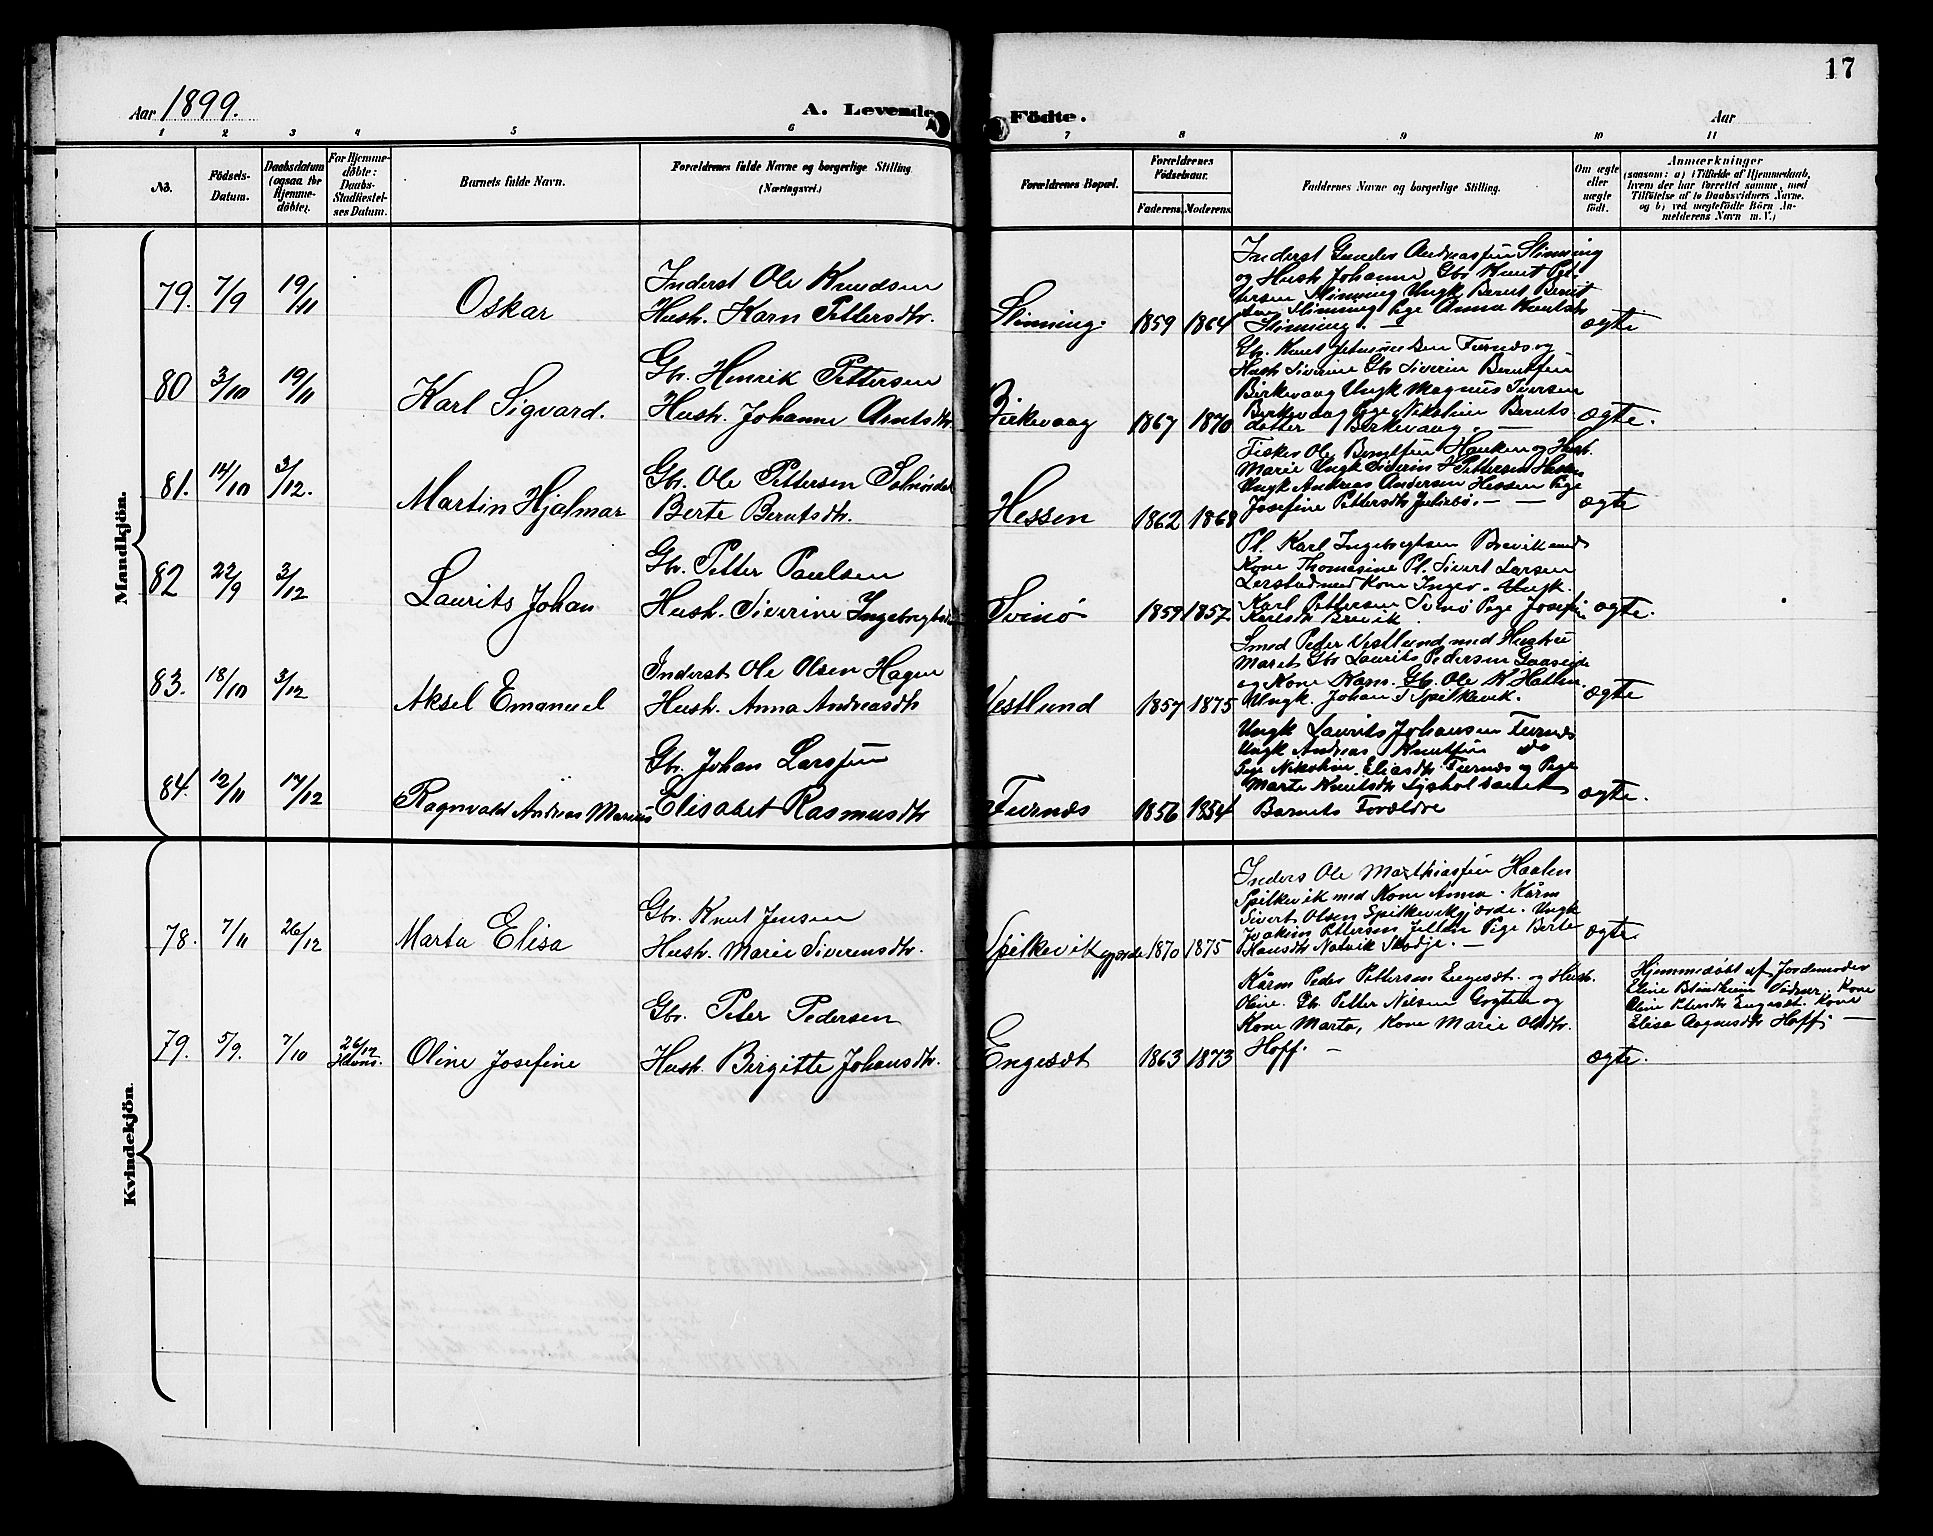 17
Aar 1899.
A. Levende
Födte.
Aar
1 2 3 4 5 6 7 8 9 10 11
No.
Födsels-Datum.
Daabsdatum (ogsaa for Hjemme-döbte).
For Hjemme-döbte: Daabs-Stadfæstel-ses Datum.
Barnets fulde Navn.
Forældrenes fulde Navne og borgerlige Stilling (Næringsvei.)
Forældrenes Bopæl.
Forældrenes Födselsaar.
Faderens. Moderens.
Faddernes Navne og borgerlige Stilling.
Om ægte eller uægte födt.
Anmærkninger
(saasom: a) i Tilfælde af Hjemmedaab,
hvem der har forrettet samme, med
Tilföielse af to Daabsvidners Navne.
og b) ved uægtefödte Börn An-
melderens Navn m. V.)
Mandkjön.
79. 7/9 19/11 Oskar
Inderst Ole Knudsen
Hush. Karn Pettersdtr.
Slinning. 1859 1864
Inderst Gunder Andreassen Slinning
og Hush Johanne Gbr Knut Pet-
tersen Slinning Ungk Bernt Bernt
sen Slinning Pige Anna Knutsdtr
Slinning.
ægte
80 3/10 19/11 Karl Sigvard.
Gbr. Henrik Pettersen
Hush. Johanne Arntsdtr
Birkevaag 1867 1870
Gbr. Knut Furnæs og
Hush Siverine Gbr Siverin Berntsen
Birkevaag Ungk Magnus Iversen
Birkevaag Pige Nikoline Bernts-
datter Birkevaag. —
ægte.
81. 14/10 3/12. Martin Hjalmar
Gbr. Ole Pettersen
Berte Berntsdtr.
Hessen 1862 1868
Fisker Ole Berntsen Hauken og Hush.
Marie Ungk Siverin Pettersen Hessen
Ungk Andreas Andersen Hessen Pige
Josefine Pettersdtr — —
ægte
82 22/9 3/12 Laurits Johan
Gbr. Petter Paulsen
Hush. Siverine Ingebrigtsdtr
Svinö 1859 1857
Pl. Karl Ingebrigtsen Brevik med
Kone Thomasine Pl. Sivert Larsen
Lerstad med Kone Inger. Ungk.
Karl Pettersen Svinö Pige Josefine
Karlsdtr Brevik.
ægte.
83. 18/10 3/12 Aksel Emanuel
Inderst Ole Olsen Hagen
Hush. Anna Andreasdtr
Vestlund 1857 1875
Smed Peder Vestlund med Hustru
Maret Gbr Laurits Pedersen Gaaseide
og Kone Karn. Gbr. Ole K Hatlen.
Ungk. Johan T Spilkevik.
ægte
84. 12/11 17/12 Ragnvald Andreas Marius
Gbr. Johan Larssen
Elisabet Rasmusdtr
Furnæs 1856 1854
Ungk Laurits Johansen Furnæs
Ungk Andreas Knutsen do
Pige Nikoline Eliasdtr Furnæs og Pige
Marte Knutsdtr
Barnets Forældre
ægte.
Kvindekjön.
78. 7/11 26/12 Marta Elisa
Gbr. Knut Jensen
Hush. Marie Siverensdtr.
Spilkevikgjerde 1870 1875
Inders Ole Mathiassen Haalen
Spilkevik med Kone Anna. Kårm
Sivert Olsen Spilkevikgjærde. Ungk
Joakim Pettersen Pige Berte
Hansdtr Natvik Skodje. —
ægte.
79. 5/9. 7/10 26/12 Oline Josefine
Gbr. Peter Pedersen
Hush. Birgitte Johansdtr.
Engesæt 1863 1873
Kårm Peder Pettersen Engesæt. og Hush.
Oline. Gbr. Petter Nilsen og
Kone Marta, Kone Marie Olsdtr.
Hoff. —
ægte.
Hjemmedöbt af Jordemoder
Eline Blindheim Vidner. Kone
Oline Petersdtr Engesæt. Kone
Elisa Hoff. —